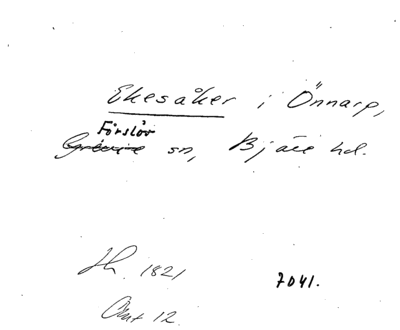 Ekesåker i Önnarp,
Förslöv
Grevie sn, Bjäre hd.
Jh. 1821
7041.
Akt 12